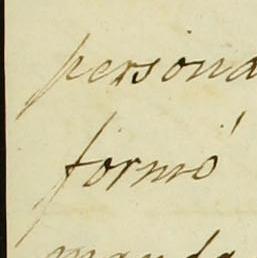 persona
formó
manda